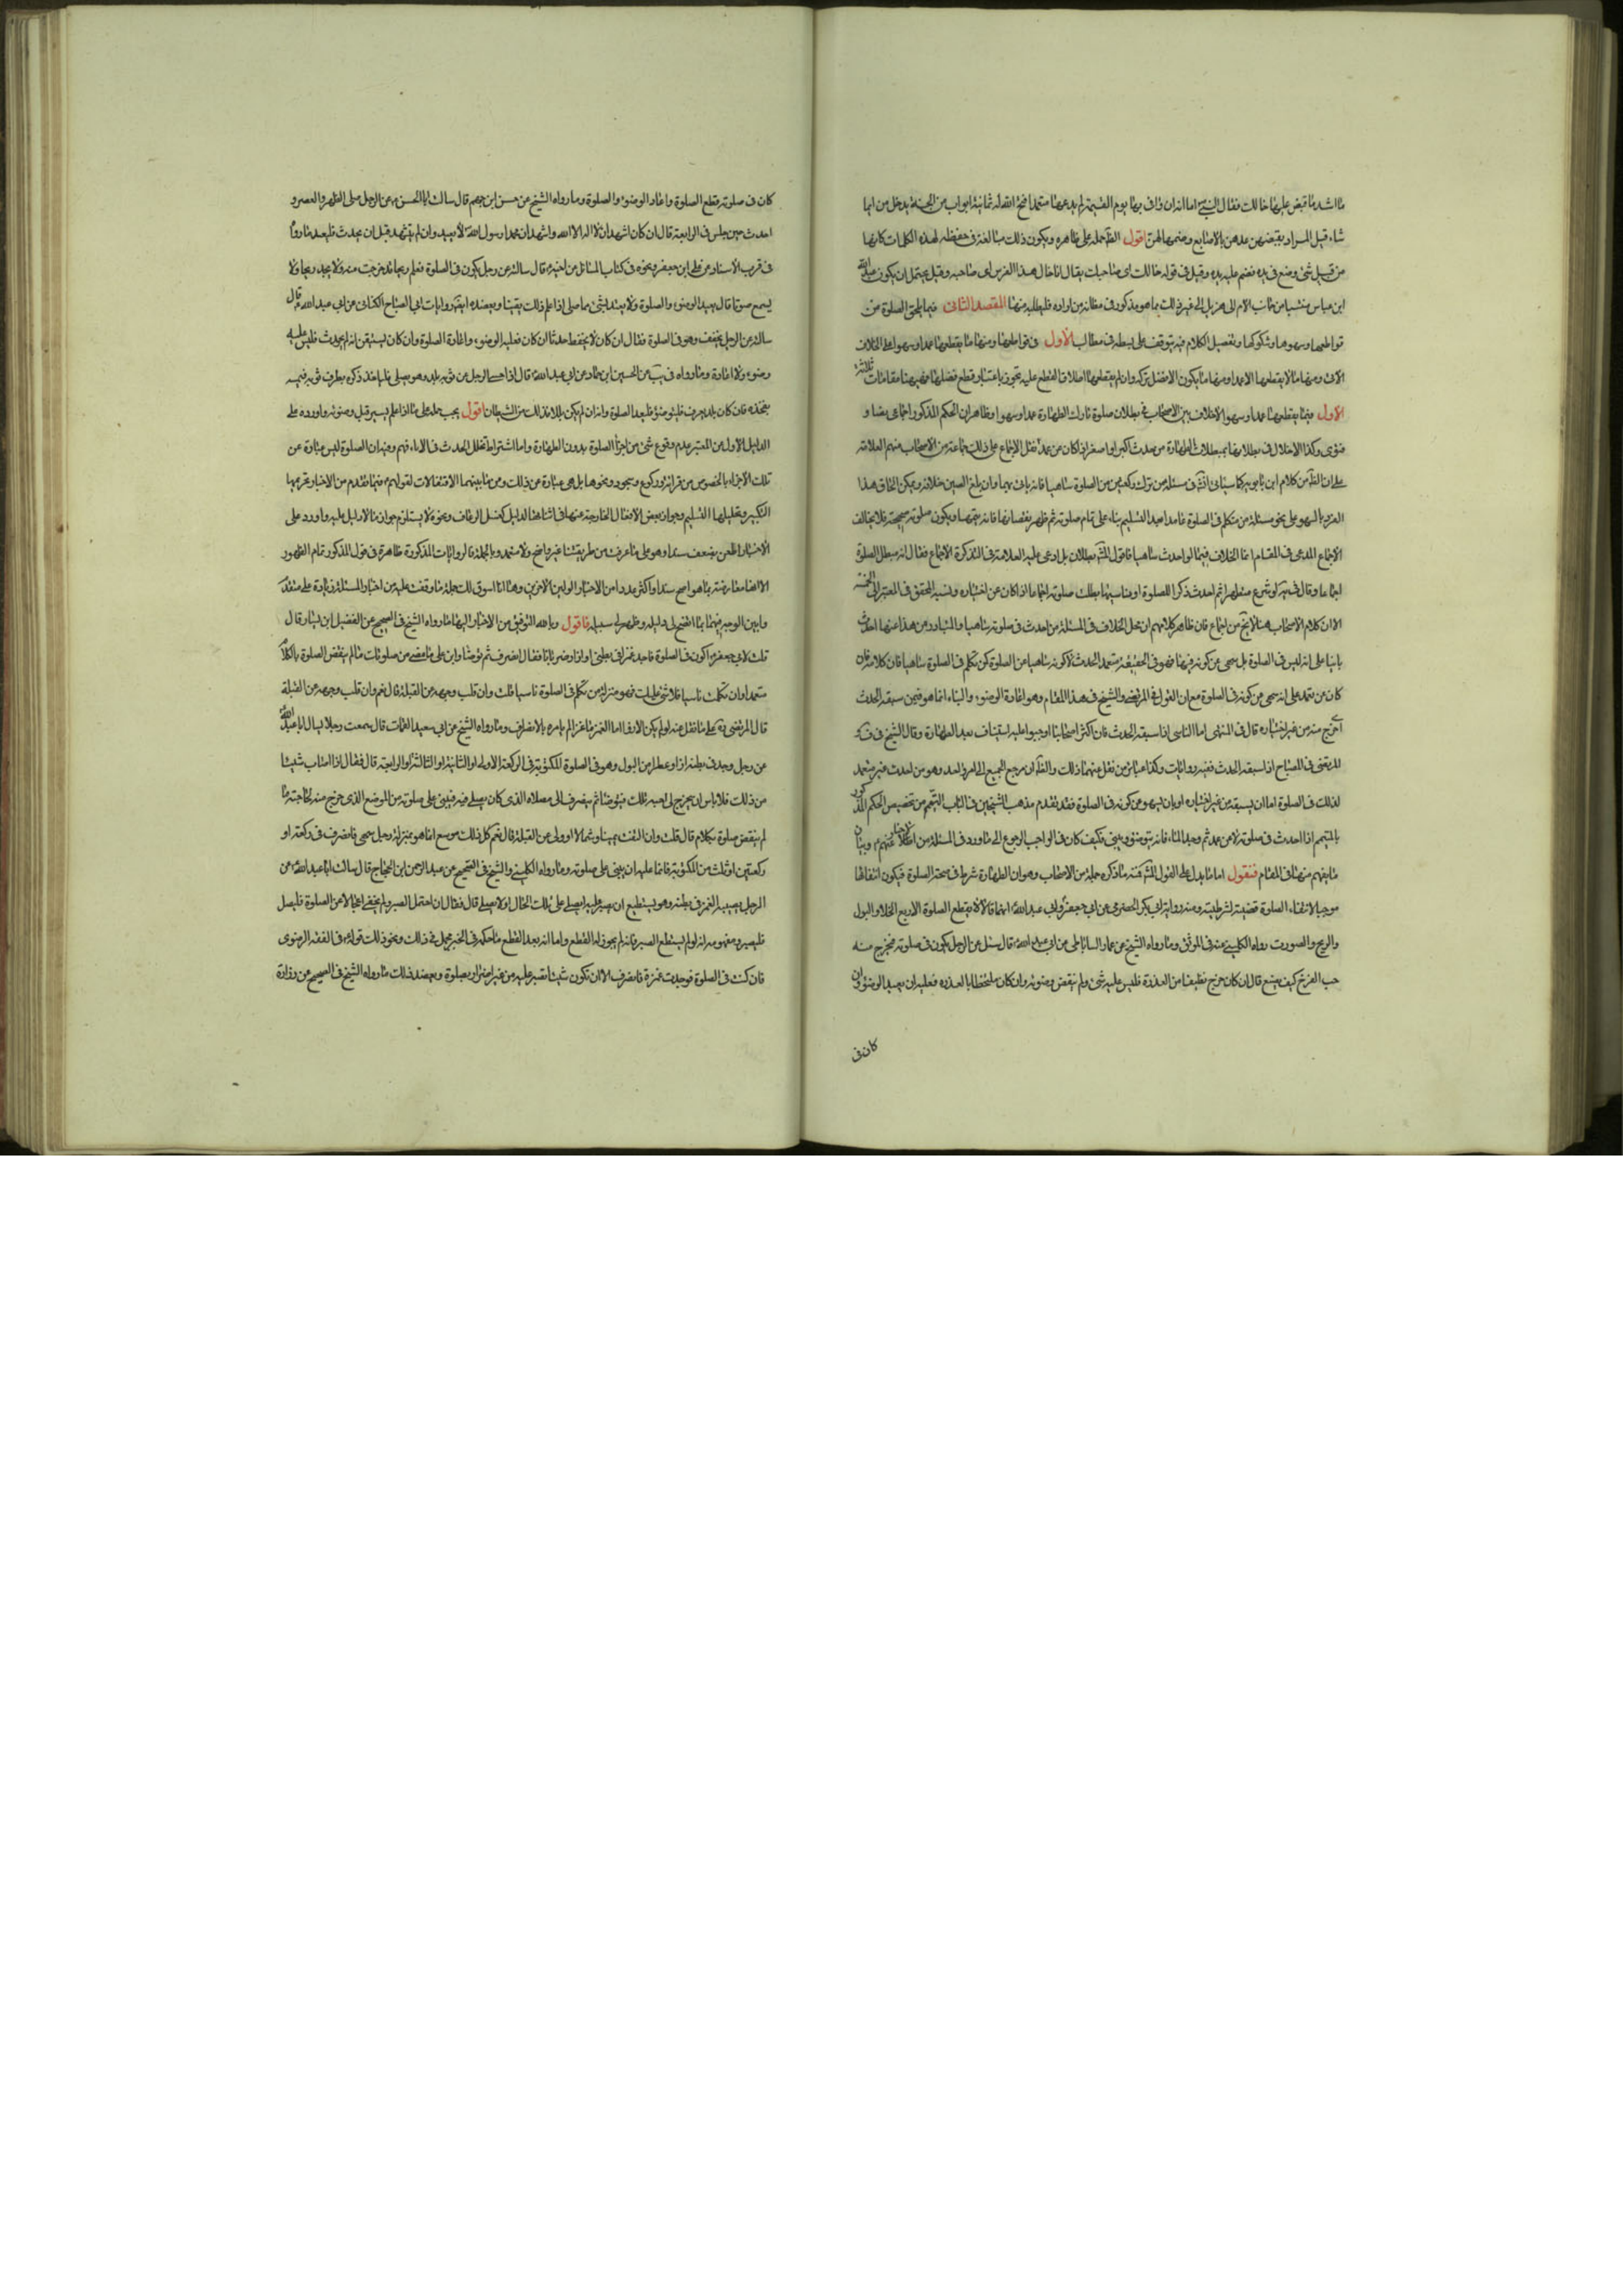 ما اشد ما قبض عليها خالك فقال النبي ص اما انه ان وافى بها يوم القيمة لم يدعها متعمدا فتح الله له ثمانية ابواب من الجنة يدخل من ايها
شاء قيل المراد بقبضهن عدهن بالاصابع وضمها لهن اقول الظ حمله على ظاهره ويكون ذلك مبالغة في حفظه لهذه الكلمات كانها
من قبيل شئ وضع في يده فضم عليه يده وقيل في قوله خالك اى صاحبك يقال انا خال هذا الفرس اى صاحبه وقيل يحتمل ان يكون عبد الله
ابن عباس منتسبا من جانب الام الى هذيل الى غير ذلك مما هو مذكور في مظانه من اراده فليطلبه منها المقصد الثانى فيما يلحق الصلوة من
قواطعها وسهوها وشكوكها وتفصيل الكلام فيه يتوقف على بسطه في مطالب الأول في قواطعها ومنها ما يقطعها عمدا وسهوا على الخلاف
الآتى ومنها ما لا يقطعها الا عمدا ومنها ما يكون الافضل تركه وان لم يقطعها اطلاق القطع عليه تجوز باعتبار قطع فضلها فههنا مقامات ثلاثة
الاول فيما يقطعها عمدا وسهوا لا خلاف بين الاصحاب في بطلان صلوة تارك الطهارة عمدا وسهوا وظاهر ان الحكم المذكور اجماعى نصا و
فتوى وكذا لا خلاف في بطلانها بمبطلات الطهارة من حدث اكبر او اصغر اذا كان عن عمد نقل الاجماع على ذلك جماعة من الاصحاب منهم العلامة
على ان الظ من كلام ابن بابويه كما سياتى ان ش في مسئلة من ترك ركعتين من الصلوة ساهيا فانه ياتى بهما وان بلغ الصين خلافه ويمكن الحاق هذا
الفرد بالسهو على نحو مسئلة من تكلم في الصلوة عامدا بعد التسليم بناء على تمام صلوته ثم ظهر نقصانها فانه يتمها ويكون صلوته صحيحة فلا يخالف
الاجماع المدعى في المقام انما الخلاف فيما لو احدث ساهيا فاقول المش بطلان بل ادعى عليه العلامة في التذكرة الاجماع فقال انه مبطل للصلوة
اجماعا وقال في يه لو شرع متطهرا ثم احدث ذكرا للصلوة او ناسيا لها بطلت صلوته اجماعا اذا كان عن اختياره ونسبه المحقق في المعتبر الى الخمسة
الا ان كلام الاصحاب هنا لا يخ من اجماع فان ظاهر كلامهم ان محل الخلاف في المسئلة من احدث في صلوته ساهيا والمتبادر من هذا عنها احدث
بانيا على انه ليس في الصلوة بل سهى عن كونه فيها فهو في الحقيقة متعمد الحدث لا كونه ساهيا عن الصلوة كمن تكلم في الصلوة ساهيا فان كلامه فان
كان عن تعمد على انه سهى عن كونه في الصلوة مع ان القول المرتضى والشيخ في هذا المقام وهو اعادة الوضوء والبناء انما هو فيمن سبقه الحدث
اى خرج منه من غير اختياره قال في المنتهى اما الناسى اذا سبقه الحدث فان اكثر اصحابنا اوجبوا عليه استيناف بعد الطهارة وقال الشيخ في ف و
المرتضى في المصباح اذا سبقه الحدث ففيه روايات وكذا عبائر من نقل عنهما ذلك والظ ان مرجع الجميع الى امر واحد وهو من احدث غير متعمد
لذلك في الصلوة اما ان يسبقه من غير اختياره او بان يسهو عن كونه في الصلوة فقد تقدم مذهب الشيخين في الباب التيمم من تخصيص الحكم المذكور
بالمتيمم اذا احدث في صلوته لا عن عمد ثم وجد الماء فانه يتوضؤ ويبنى فكيف كان فالواجب الرجوع الى ما ورد في المسئلة من الاخبار عنهم ع وبيان
ما يفهم منها في المقام فنقول اما ما يدل على القول المش فمنه ما ذكره جملة من الاصحاب وهو ان الطهارة شرط في صحة الصلوة فيكون انتفائها
موجبا لانتفاء الصلوة قضية لشرطيته ومنه رواية ابى بكر الحضرمى عن ابى جعفر ع وابى عبد الله ع انهما قالا لا يقطع الصلوة الا اربع الخلاء والبول
والريح والصوت رواه الكلينى عنه في الموثق وما رواه الشيخ عن عمار الساباطى عن ابى عبد الله ع قال سئل عن الرجل يكون في صلوته فيخرج منه
حب القرع كيف يصنع قال ان كان خرج نظيفا من العذرة فليس عليه شئ ولم ينقض وضوئه وان كان متلطخا بالعذرة فعليه ان يعيد الوضوء وان
كان في
كان في صلوته قطع الصلوة واعاد الوضوء والصلوة وما رواه الشيخ عن حسن ابن جهم قال سالت ابا الحسن ع عن الرجل صلى الظهر والعصر و
احدث حين جلس في الرابعة قال ان كان اشهد ان لا اله الا الله واشهد ان محمدا رسول الله ص لا يعيد وان لم يتشهد قبل ان يحدث فليعد ما رواه
في قرب الاسناد عن على ابن جعفر ع ونحوه في كتاب المسائل عن اخيه ع قال سالته عن رجل يكون في الصلوة فعلم ريحا قد خرجت منه ولا يجد ريحا ولا
يسمع صوتا قال يعيد الوضوء والصلوة ولا يعتد بشئ مما صلى اذا علم ذلك يقينا ويعضده ايض روايات ابى الصباح الكنانى عن ابى عبد الله ع قال
سالته عن الرجل يخفف وهو في الصلوة فقال ان كان لا يحفظ حدثا ان كان فعليه الوضوء واعادة الصلوة وان كان يستيقن انه لم يحدث فليس عليه
وضوء ولا اعادة وما رواه في يب عن الحسين ابن حماد عن ابى عبد الله ع قال اذا احس الرجل من ثوبه بللا وهو يصلى فلياخذ ذكره بطرف ثوبه فيمسه
بفخذه فان كان بللا يعرف فليتوضؤ فليعد الصلوة وانه ان لم يكن بللا فذلك من الشيطان اقول يجب حمله على ما اذا علم بسبق بول وضوئه واورد على
الدليل الاول بان المعتبر عدم وقوع شئ من اجزاء الصلوة بدون الطهارة واما اشتراط تخلل الحدث في الاثناء فهم وفيه ان الصلوة ليس عبارة عن
تلك الاجزاء بالخصوص من قرائة وركوع وسجود ونحوها بل هى عبارة عن ذلك ومن ما بينهما الانتقالات لقولهم ع فيما تقدم من الاخبار تحريمها
التكبير وتحليلها التسليم وجواز بعض الافعال الخارجة عنها في اثنائها لدليل كغسل الرعاف ونحوه لا يستلزم جواز ما لا دليل عليه واورد على
الاخبار الطعن بضعف سندها وهو على ما عرفت من طريقتنا غير واضح ولا معتمد وبالجملة فالروايات المذكورة ظاهرة في قول المذكور تمام الظهور
الا انها معارضة بما هو اصح سندا واكثر عددا من الاخبار الواردة الآخرين وها انا اسوق لك جملة ما وقفت عليه من اخبار المسئلة زيادة على ما تقدم
وابين الوجه فيها بما اتضح لى دليله وظهر لى سبيله فاقول وبالله التوفيق من الاخبار اليها ما رواه الشيخ في الصحيح عن الفضيل ابن يسار قال
قلت لابى جعفر ع اكون في الصلوة فاجد غمزا في بطنى او اذا او ضربانا فقال انصرف ثم توضأ وابن على ما مضى من صلوتك ما لم ينقض الصلوة بالكلام
متعمدا وان تكلمت ناسيا فلا شئ عليك فهو بمنزلة من تكلم في الصلوة ناسيا قلت وان قلب وجهه عن القبلة قال نعم وان قلب وجهه عن القبلة
قال المرتضى ره على ما نقل عنه لو لم يكن الاذى اما الغمز فاعز الم يامره بالانصراف وما رواه الشيخ عن ابى سعيد القماط قال سمعت رجلا يسال ابا عبد الله ع
عن رجل وجد في بطنه اذا او عصرا من البول وهو في الصلوة المكتوبة في الركعة الاولى او الثانية او الثالثة او الرابعة قال فقال اذا اصاب شيئا
من ذلك فلا باس ان يخرج لحاجته تلك فيتوضا ثم ينصرف الى مصلاه الذى كان يصلى فيه فيبنى على صلوته من الموضع الذى خرج منه لحاجته ما
لم ينقض صلوة بكلام قال قلت وان التفت يمينا وشمالا او ولى عن القبلة قال نعم كل ذلك موسع انما هو بمنزلة رجل سهى فانصرف في ركعة او
ركعتين او ثلث من المكتوبة فانما عليه ان يبنى على صلوته وما رواه الكلينى والشيخ في الصحيح عن عبد الرحمن ابن الحجاج قال سالت ابا عبد الله ع عن
الرجل يصيبه الغمز في بطنه وهو يستطيع ان يصبر عليه ايصلى على تلك الحال او لا يصلى قال فقال ان احتمل الصبر ولم يخف اعجالا عن الصلوة فليصل
فليصبر ومفهومه انه لو لم يستطع الصبر فانه لم يجوز له القطع واما انه بعد القطع ما حكمه في الخبر مجمل في ذلك ونحو ذلك قوله ع في الفقه الرضوى
فان كنت في الصلوة فوجدت غمزة فانصرف الا ان تكون شيئا تصبر عليه من غير اضرار بصلوة ويعضد ذلك ما رواه الشيخ في الصحيح عن زرارة